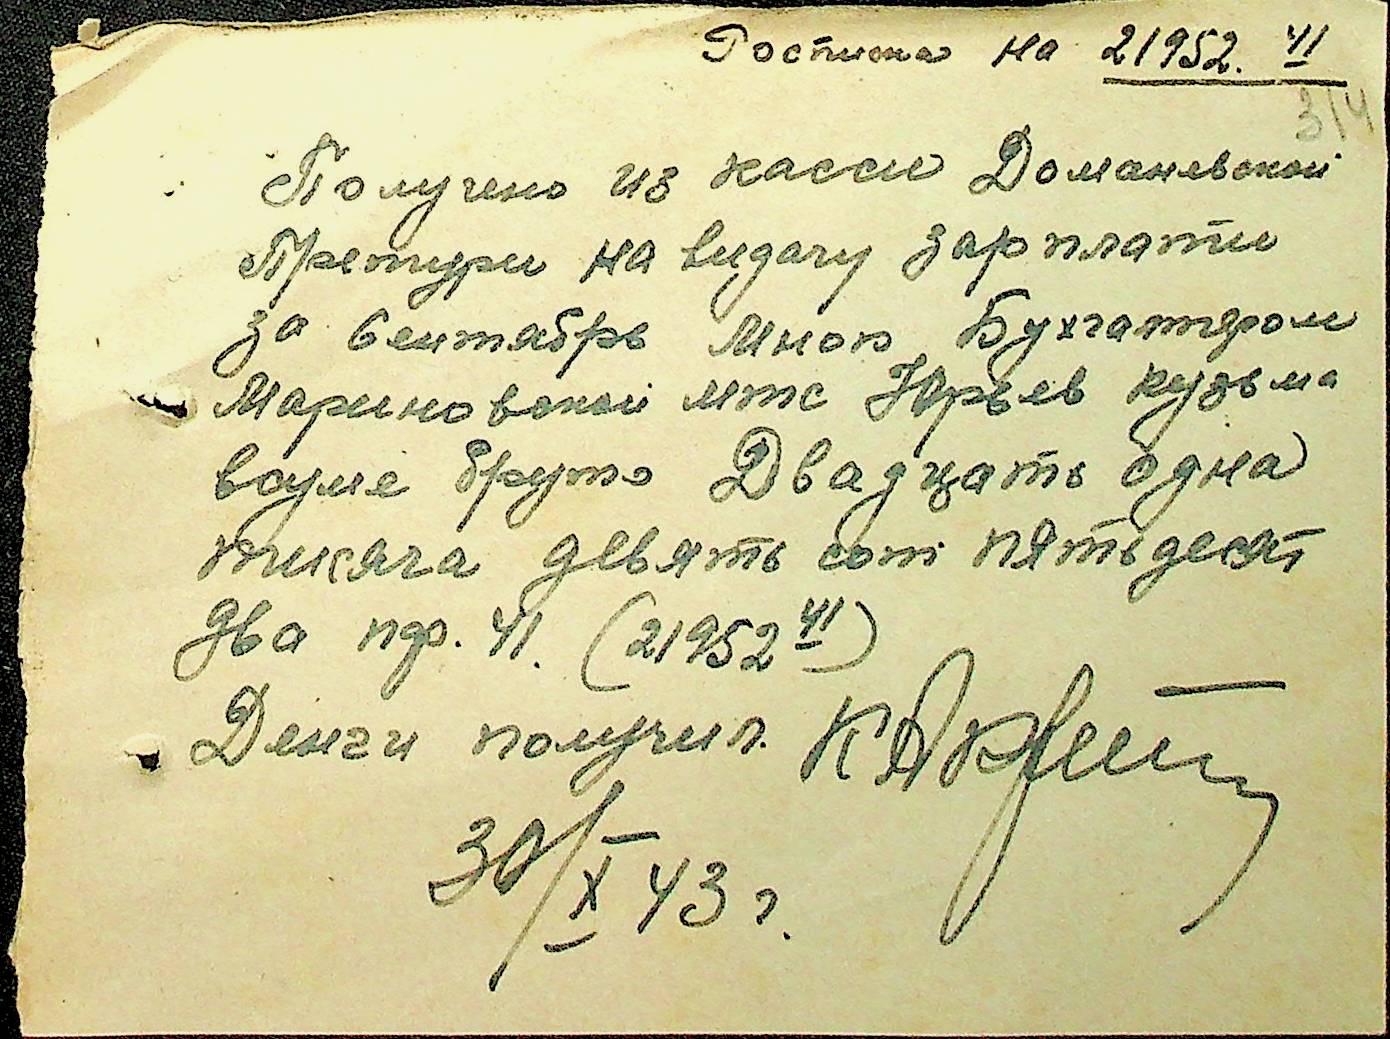 Росписка на 21952. 41
314
Получено из касси Доманевской
Претури на видачу зарплати
за Сентябрь Мною Бухгаттером
Мариновской мтс Юрьев кузьма
всуме бруто Двадцать одна
тисяча девять сот пятьдесят
два пф. 41. (21952 41)
Денги получил.
30/X 43 г.